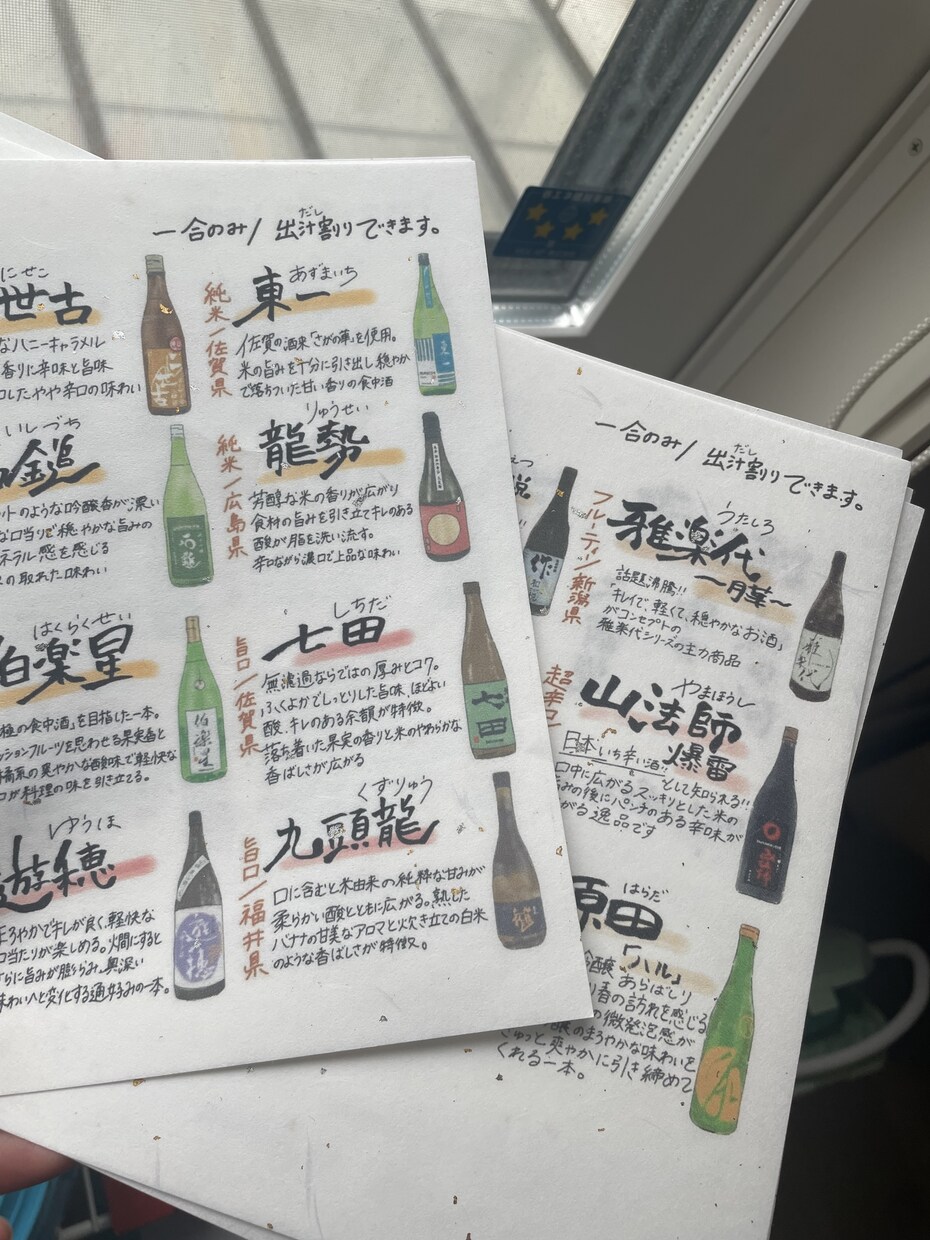 一合のみ/ 出汁割りできます。
だし
にぜこ
世古
なハニーキャラメル
香りに辛味と旨味
コしたやや辛口の味わい
純米/佐賀県
あずまいち
東一
佐賀の酒米「さがの華」を使用。
米の旨みを十分に引き出し穏やか
で落ちついた甘い香りの食中酒
いしづち
鎚
ットのような吟醸香が漂い
な口当りで穏やかな旨みの
ネラル感を感じる
の取れた味わい
純米/広島県
りゅうせい
龍勢
芳醇な米の香りが広がり
食材の旨みを引き立てキレのある
酸が脂を洗い流す。
辛口ながら濃口で上品な味わい
はくらくせい
伯楽星
極の食中酒」を目指した一本。
ッションフルーツを思わせる果実香と
橘系の爽やかな酸味で軽快な
口が料理の味を引き立てる。
伯楽星
旨口/佐賀県
しちだ
七田
無濾過ならではの厚みとコク。
ふくよかでしっとりした旨味、ほどよい
酸、キレのある余韻が特徴。
落ち着いた果実の香りと米のやわらかな
香ばしさが広がる
七田
ゆうほ
遊穂
まろやかで干しが良く、軽快な
口当たりが楽しめる。火間にすると
さらに旨みが膨らみ、奥深い
味わいへと変化する通好みの一本。
旨口/福井県
くずりゅう
九頭龍
口に含むと米由来の純粋な甘みが
柔らかい酸とともに広がる。熟した
バナナの甘美なアロマと火炊き立ての白米
のような香ばしさが特徴。
一合のみ/ 出汁割りできます。
だし
作
フルーティ/新潟県
うたしろ
雅楽代
〜月華〜
話題沸騰!!
「キレイで、軽くて、穏やかなお酒」
がコンセプトの
雅楽代シリーズの主力商品
超辛口
やまほうし
山法師
爆雷
日本いち辛い酒!
として知られる!!
口中に広がるスッキリとした米の
みの後にパンチのある辛味が
がる逸品です
はらだ
原田
「ハル」
あらばしり
春の訪れを感じる
の微発泡感が
のまろやかな味わいを
きゅっと爽やかに引き締めて
くれる一本。